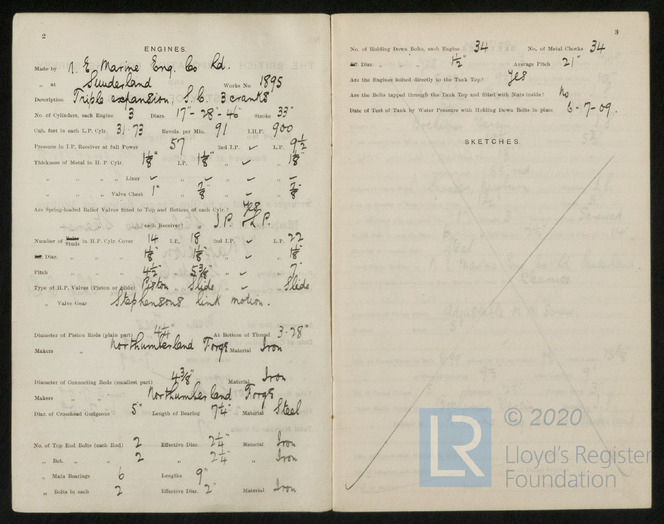 2
ENGINES.
Made by N. E. Marine Eng. Co Ld.
„ at Sunderland Works No. 1895
Description Triple expansion S.C. 3 cranks
No. of Cylinders, each Engine 3 Diars. 17" - 28" - 46" Stroke 33"
Cub. feet in each L.P. Cylr. 31.73 Revols. per Min. 91 I.H.P. 900
Pressure in I.P. Receiver at full Power 57 2nd I.P. L.P. 9½
Thickness of Metal in H. P. Cylr. 1⅛" I.P. 1⅛" „ „ 1⅛"
„ „ „ Liner – „ – „ „ –
„ „ „ Valve Chest 1" „ ⅞" „ „ ⅞"
Are Spring-loaded Relief Valves fitted to Top and Bottom of each Cylr.? Yes
„ „ „ each Receiver? I.P. & L.P.
Number of Studs in H.P. Cylr. Cover 14 I.P. 18 2nd I.P. L.P. 22
Diar. „ 1⅛" „ 1⅛" „ „ 1⅛"
Pitch „ 4½" „ 5⅜" „ „ 7"
Type of H.P. Valves (Piston or Slide) Piston Slide Slide
„ Valve Gear Stephensons link motion.
Diameter of Piston Rods (plain part) 4¼" At Bottom of Thread 3.28"
Makers „ Northumberland Forge Material Iron
Diameter of Connecting Rods (smallest part) 4⅜" Material Iron
Makers „ Northumberland Forge
Diar. of Crosshead Gudgeons 5" Length of Bearing 7¼" Material Steel
No. of Top End Bolts (each Rod) 2 Effective Diar. 2¼" Material Iron
„ Bot. „ „ 2 „ 2¼" „ Iron
„ Main Bearings 6 Lengths 9"
„ Bolts in each 2 Effective Diar. 2" Material Iron
3
No. of Holding Down Bolts, each Engine 34 No. of Metal Chocks 34
Diar. „ 1½" Average Pitch 21"
Are the Engines bolted directly to the Tank Top? Yes
Are the Bolts tapped through the Tank Top and fitted with Nuts inside? No
Date of Test of Tank by Water Pressure with Holding Down Bolts in place 6-7-09.
SKETCHES.
LR © 2020
Lloyd's Register
Foundation